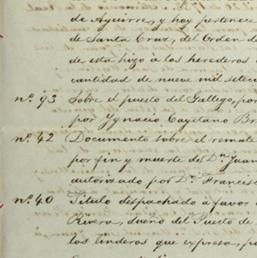 de Aguirre, y hoy pertenece
de Santa Cruz, del Orden d
de esta hizo a los herederos
cantidad de nueve mil setec
nº 93 Sobre el puesto del Gallego, por
por Ygnacio Cayetano Br
nº 42 Documento sobre el remate
por fin y muerte del Dn Juan
autorizado por Dn Francisc
nº 40 Titulo despachado á favor
Rivera, dueño del Puesto de
los linderos que expresa, f